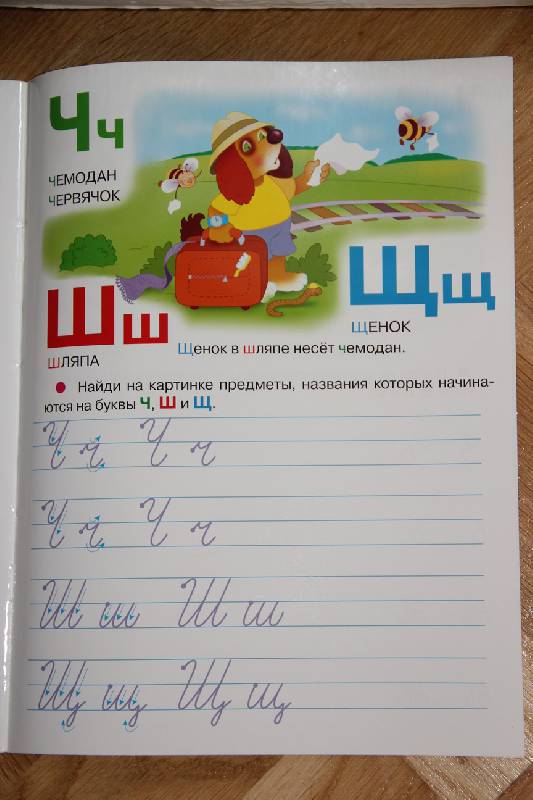 Чч
ЧЕМОДАН
ЧЕРВЯЧОК
Шш
ШЛЯПА
Щщ
ЩЕНОК
Щенок в шляпе несёт чемодан.
Найди на картинке предметы, названия которых начина-
ются на буквы Ч, Ш и Щ.
Ч ч Ч ч
Ч ч Ч ч
Ш ш Ш ш
Щ щ Щ щ